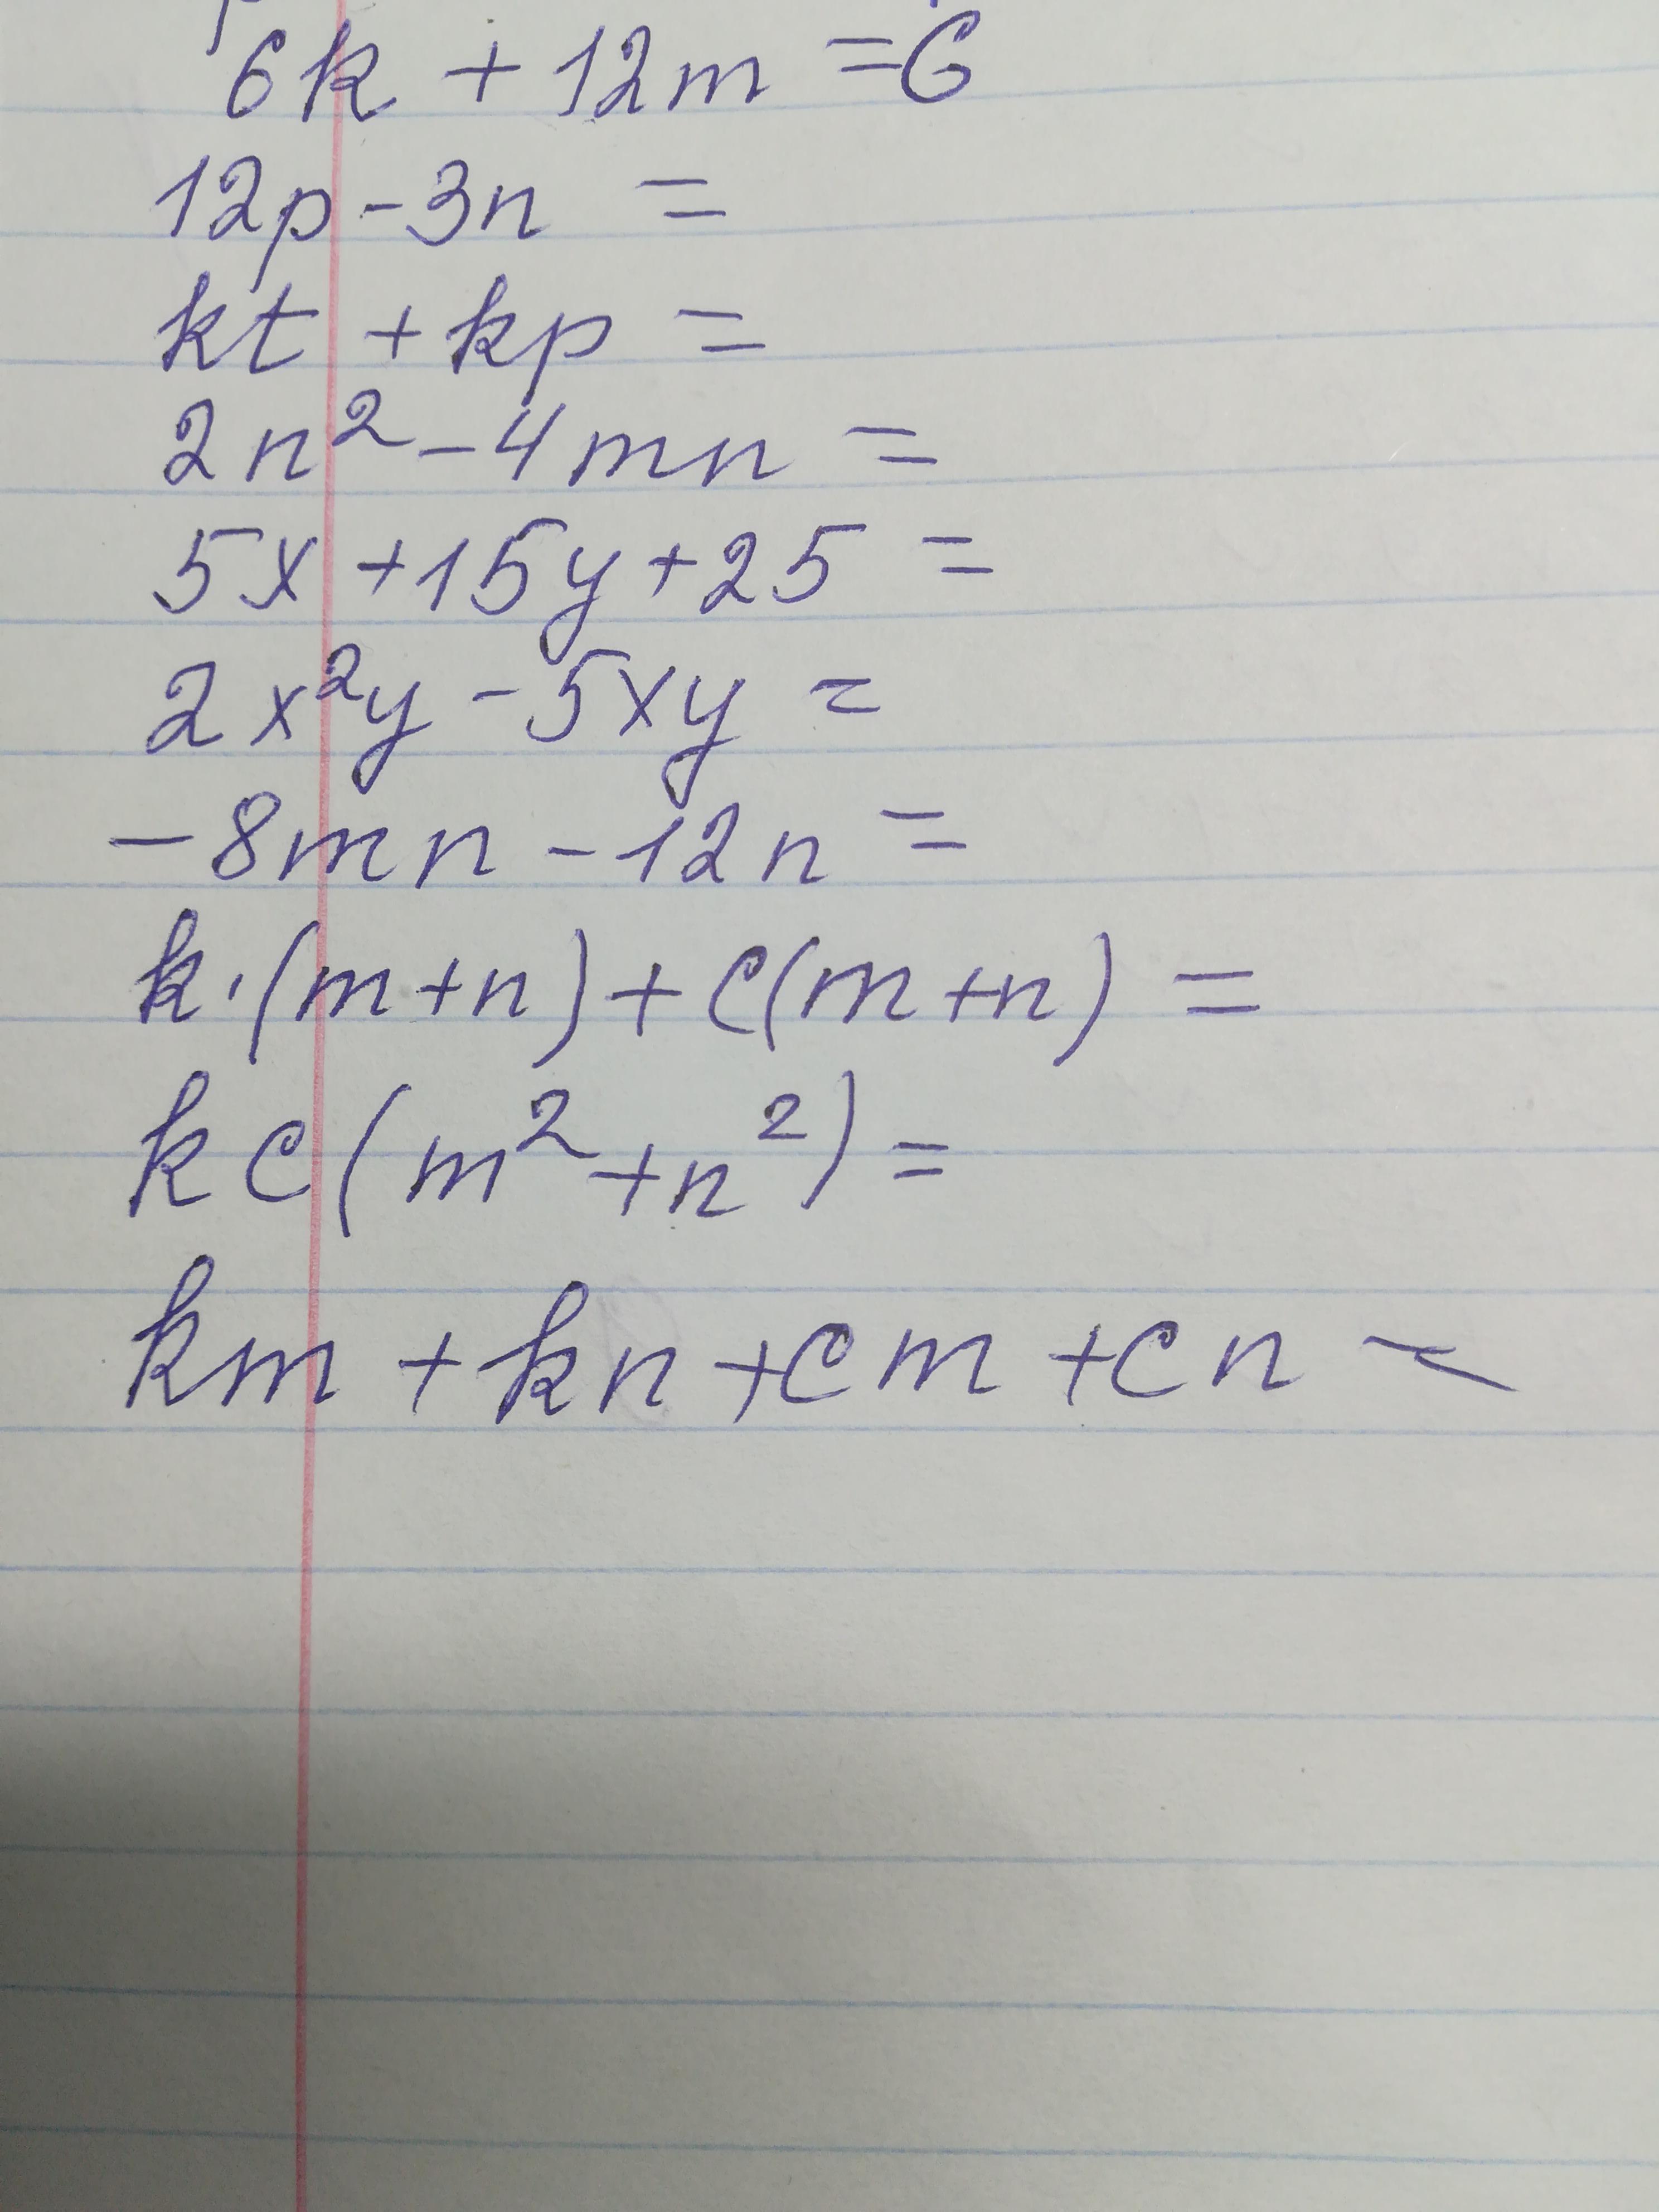 6k + 12m = 6
12p - 3n =
kt + kp =
2n² - 4mn =
5x + 15y + 25 =
2x²y - 5xy =
- 8mn - 12n =
k·(m+n) + c(m+n) =
kc(m² + n²) =
km + kn + cm + cn =